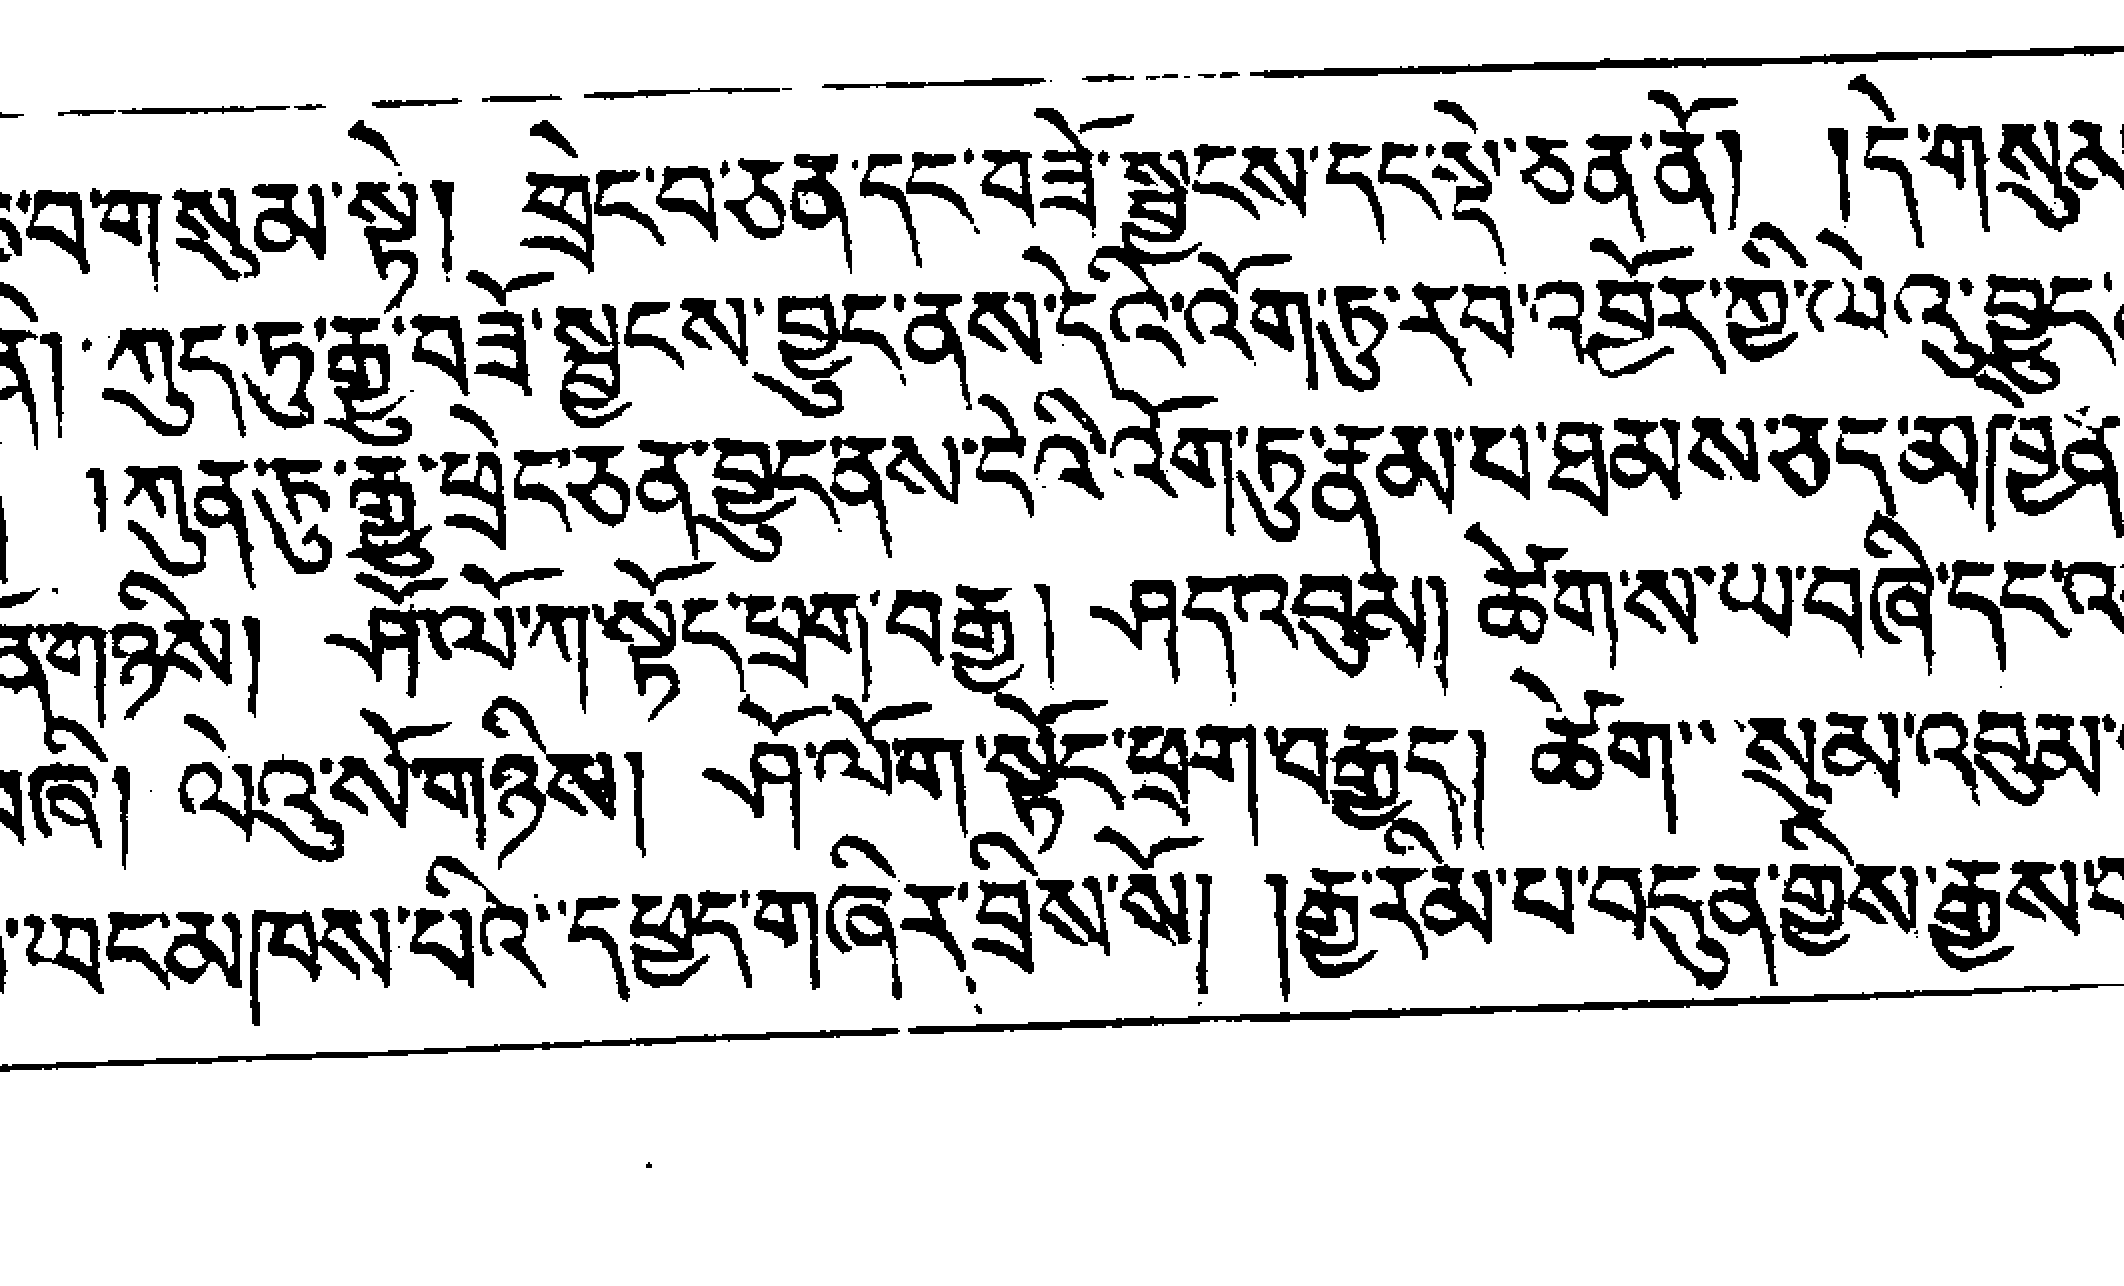 བ་གསུམ་སྟེ། ཕྲེང་བ་ཅན་དང་བཟོ་སྦྱངས་དང་སྡེ་ཅན་ནོ། །དེ་གསུམ
ནི། ཀུད་ཏུ་རྒྱུ་བཟོ་སྦྱངས་བྱུང་ནས་དེའི་འོག་ཏུ་རབ་འབྱོར་ཀྱི་ལེའུ་བྱུང་
། །ཀུན་ཏུ་རྒྱུ་ཕྲེང་ཅན་བྱུང་ནས་དེའི་འོག་ཏུ་རྣམ་པ་ཐམས་ཅད་མཁྱེན
ན་གཉིས། ཤོ་ལོ་ཀ་སྟོང་ཕྲག་བརྒྱ། ཤད་འབུམ། ཚེག་ས་ཡ་བཞི་དང་འ
བཞི། ལེའུ་སོ་གཉིས། ཤོ་ལོག་སྟོང་ཕྲག་བརྒྱད། ཚེག་ སུམ་འབུམ་
ཡང་མཁས་པའི་དཔྱད་གཞིར་བྲིས་སོ། །རྒྱ་རིམ་པ་བདུན་གྱིས་རྒྱས་བ